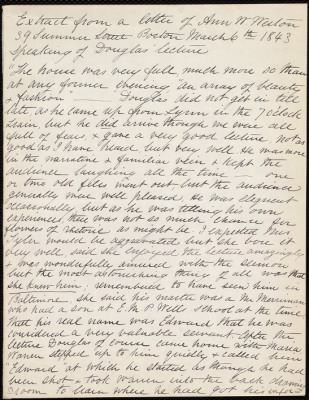 Extract from a letter of Ann W. Weston
39 Summer Street Boston March 6th 1843
Speaking of Douglas' lecture
"The house was very full, much more so than
at any former evening an array of beauty
& fashion" — Douglas did not get in till
late as he came up from Lynn in the 7 o'clock
train, but he did arrive though we were all
full of fears & gave a very good lecture. not as
good as I have heard but very well. He was more
in the narrative & familiar vein & kept the
audience laughing all the time — one
or two old files went out but the audience
generally were well pleased. He was eloquent
occasionally but as he was telling his own
experiences there was not so much chance for
flowers of rhetoric as might be. I expected Mrs
Tyler would be aggravated but she bore it
very well. said she enjoyed the lecture amazingly
& was wonderfully amused with the sermon
but the most astonishing thing of all was that
she knew him; remembered to have seen him in
Baltimore. She said his master was a Mr Merriman
who had a son at E. M. P. Wells school at the time
that his real name was Edward that he was
considered a very valuable servant. After the
lecture Douglas of course came home with Maria
Warren stepped up to him quickly & called him
"Edward" at which he started as though he had
been shot & took Warren into the back drawing
room to learn where he had got his infor-